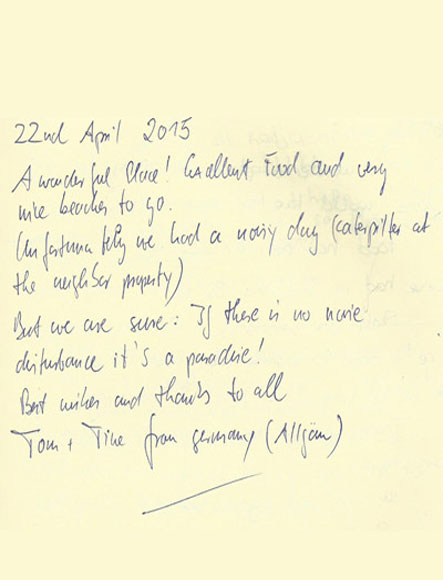 22nd April 2015
A wonderful Place! Excellent Food and very
nice beaches to go.
Unfortunately we had a noisy day (caterpiller at
the neighbor property)
But we are sure: If there is no noise
disturbance it's a paradise!
Best wishes and thanks to all
Tom + Tine from germany (Allgäu)